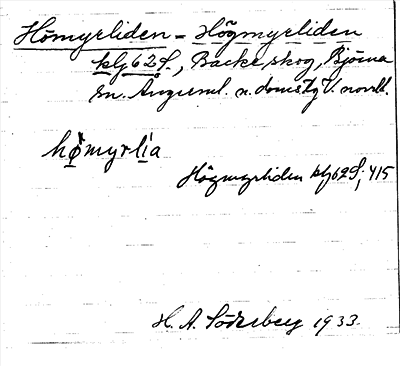 Hömyrliden = Högmyrliden
klj 62 S., Backe, skog, Björna
sn. Ångerml. n. doms[tg] V. nordl.
hömyrlia
Högmyrliden klj 62 S; 415
H. A. Söderberg 1933.